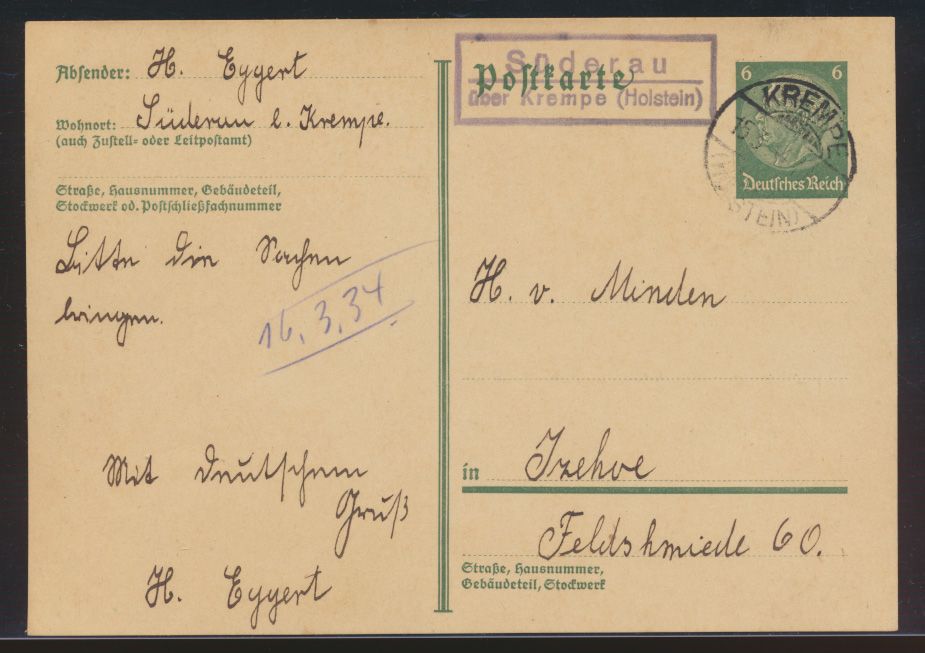 Absender: H. Eggert
Wohnort: Süderau b. Krempe.
(auch Zustell- oder Leitpostamt)
Straße, Hausnummer, Gebäudeteil,
Stockwerk od. Postschließfachnummer
Bitte die Sachen
bringen.
16.3.34
Mit deutschem
Gruß
H. Eggert
Postkarte
Süderau
über Krempe (Holstein)
6 6
Deutsches Reich
KREMPE
H. v. Minden
in Izehoe
Feldshmiede 60.
Straße, Hausnummer,
Gebäudeteil, Stockwerk